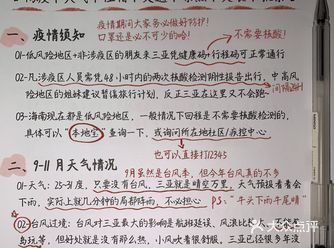 疫情期间大家务必做好防护!
一、疫情须知
口罩还是必不可少的哈!
不需要核酸!
01-低风险地区+非涉疫区的朋友来三亚凭健康码+行程码可正常通行
02-凡涉疫区人员需凭48小时内的两次核酸检测阴性报告出行,中高风
间隔24h
险地区的姐妹建议暂缓旅行计划,反正三亚在这里又不会跑.
03-海南现在都是低风险地区,一般情况下回程是不需要核酸检测的,
具体可以"本地宝"查询一下,或询问所在地社区/疾控中心
也可以直接打12345
二、9-11月天气情况
9月虽然是台风季,但今年台风真的不多
01-天气:25-31度,只要没有台风,三亚就是晴空万里,天气预报看看会
下雨,实际上就几分钟的局部阵雨,不必担心
ps:"牛下雨牛尾晴"
02-台风过境:台风对三亚最大的影响是航班延误、风浪比较大,不能
岛玩,但好处就是没有那么热,小风吹着很舒服,三亚已经很多年没